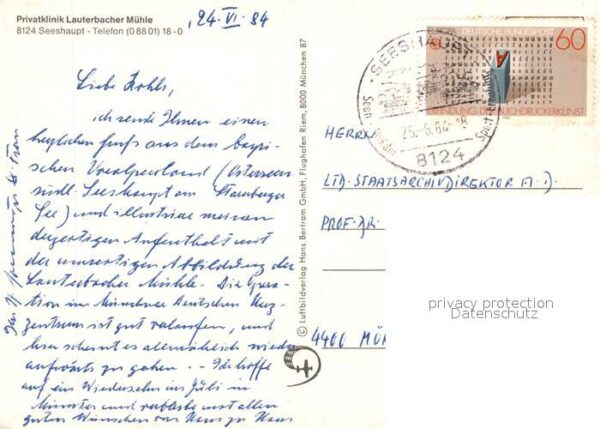 Privatklinik Lauterbacher Mühle
8124 Seeshaupt - Telefon (0 88 01) 18-0
24. VI. 84
Liebe Kohls,
ich sende Ihnen einen
herzlichen Gruß aus dem bayri-
schen Voralpenland (Osterseen
südl. Seeshaupt am Starnberger
See) und illustriere meinen
derzeitigen Aufenthalt mit
der umseitigen Abbildung der
Lauterbacher Mühle. Die Opera-
tion im Münchner Deutschen Herz-
zentrum ist gut verlaufen, und
hier scheint es allmählich wieder
aufwärts zu gehen. -- Ich hoffe
auf ein Wiedersehn im Juli in
Münster und verbleibe mit allen
guten Wünschen von Haus zu Haus
Ihr
Frau
© Luftbildverlag Hans Bertram GmbH, Flughafen Riem, 8000 München 87
EUROPA DEUTSCHE BUNDESPOST 60
ERFINDUNG DER BUCHDRUCKERKUNST
SEESHAUPT
25.-6.84-18
8124
HERRN
LTD. STAATSARCHIVDIREKTOR
PROF. DR.
4400 MÜN
privacy protection
Datenschutz